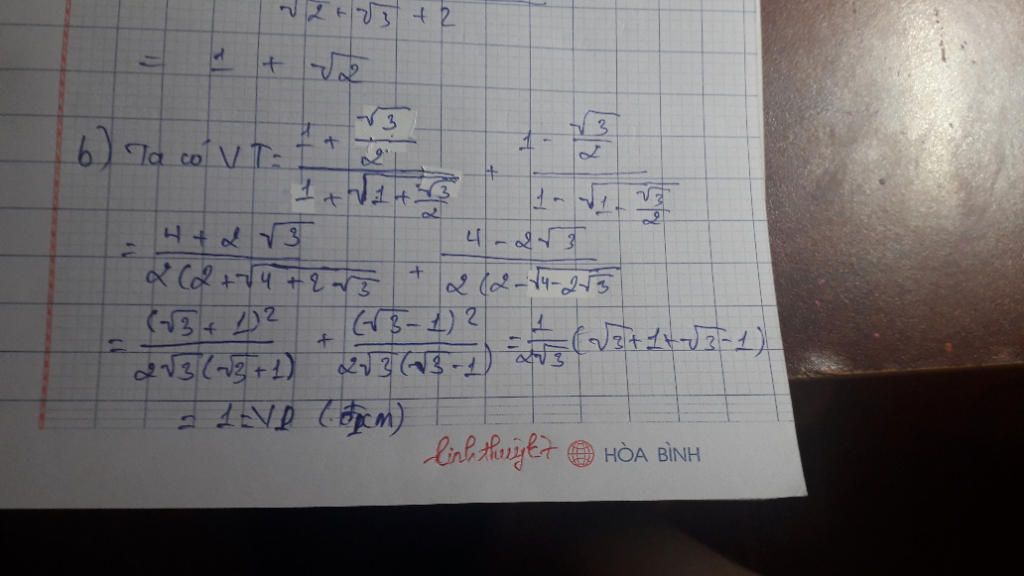 √2 + √3 + 2
= 1 + √2
b) Ta có VT = (1 + √3/2)/(1 + √(1 + √3/2)) + (1 - √3/2)/(1 - √(1 - √3/2))
= (4 + 2√3)/(2(2 + √(4 + 2√3) + (4 - 2√3)/(2(2 - √(4 - 2√3)
= (√3 + 1)²/(2√3(√3 + 1)) + (√3 - 1)²/(2√3(√3 - 1)) = 1/(2√3) (√3 + 1 + √3 - 1)
= 1 = VP (đpcm)
linhthuy67 HÒA BÌNH